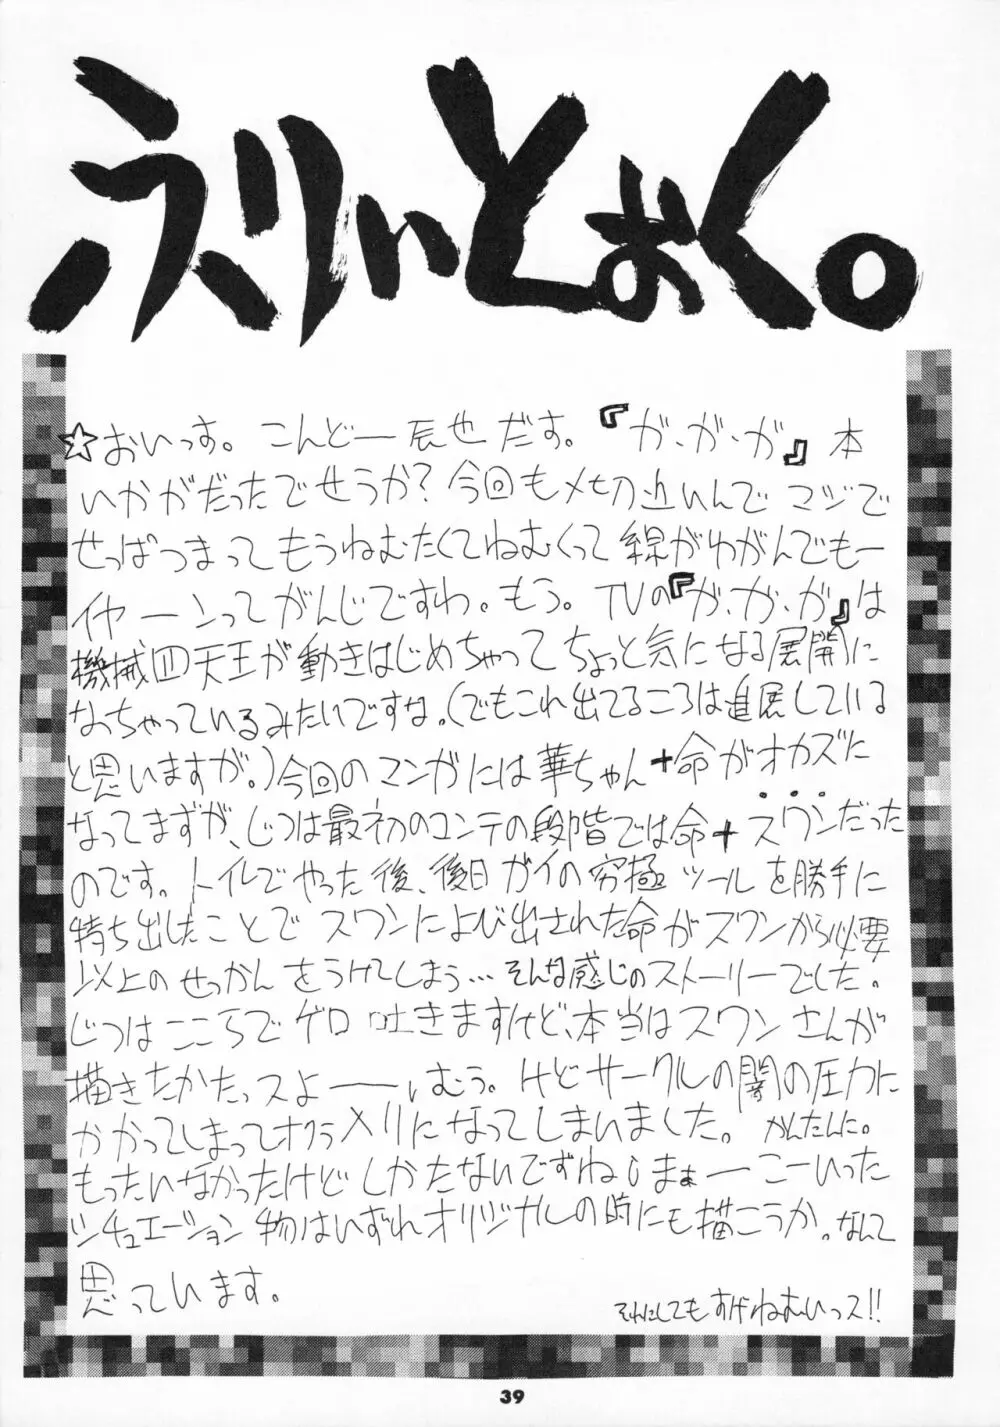 えりぃとぉく。
☆おいっす。こんどー辰也だす。『ガ・ガ・ガ』本
いかがだったでせうか？今回もメ切近いんでマジで
せっぱつまってもうねむたくてねむくって線がわがんでもー
イヤーンってがんじですわ。もう。TVの『ガ・ガ・ガ』は
機械四天王が動きはじめちゃってちょっと気になる展開に
なっちゃっているみたいですな。(でもこれ出てるころは進展している
と思いますが。)今回のマンガには華ちゃん+命がオカズに
なってまずが、じつは最初のコンテの段階では命+スワンだった
のです。トイレでやった後、後日ガイの究極ツールを勝手に
持ち出したことでスワンによび出された命がスワンから必要
以上のせっかんをうけてしまう…そんな感じのストーリーでした。
じつはこころでゲロ吐きますけど、本当はスワンさんが
描きたかたっスよーーいむう。けどサークルの闇の圧力に
かかってしまってオクラ入りになってしまいました。かんたんに。
もったいなかったけどしかたないですねしまぁーこーいった
シチュエーション物はいずれオリジナルの時にも描こうか。なんて
思っています。
それにしてもすげねむいっス!!
39